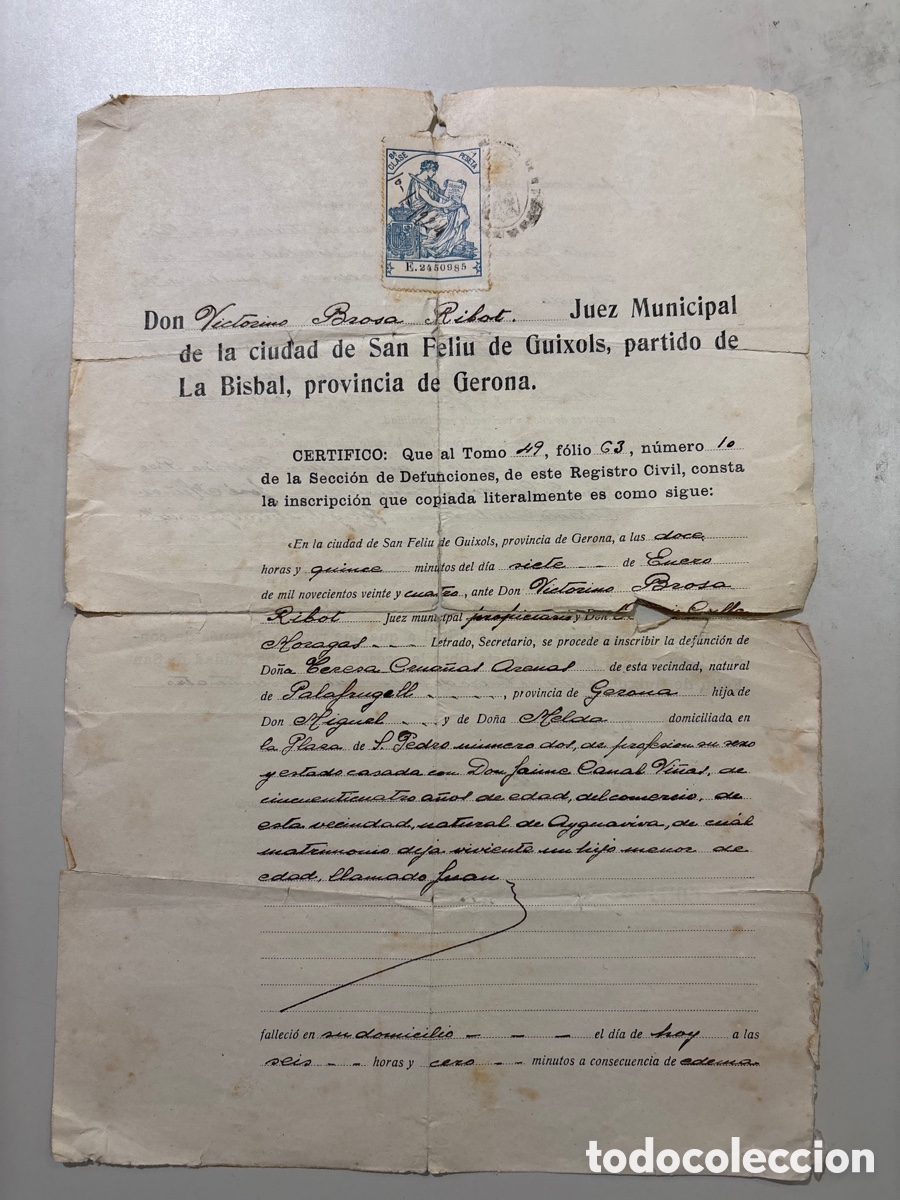 8ª CLASE
1 PESETA
E.2450985
Don Victorino Brosa Ribot. Juez Municipal
de la ciudad de San Feliu de Guixols, partido de
La Bisbal, provincia de Gerona.
CERTIFICO: Que al Tomo 49, fólio 63, número 10
de la Sección de Defunciones, de este Registro Civil, consta
la inscripción que copiada literalmente es como sigue:
«En la ciudad de San Feliu de Guixols, provincia de Gerona, a las doce
horas y quince minutos del día siete - - de Enero
de mil novecientos veinte y cuatro, ante Don Victorino Brosa
Ribot Juez municipal propietario y Don
Moragas - - - Letrado, Secretario, se procede a inscribir la defunción de
Doña Teresa Cruañas Arenas - de esta vecindad, natural
de Palafrugell - - - -, provincia de Gerona hija de
Don Miguel - - y de Doña Melda domiciliado en
la Plaza de S. Pedro número dos, de profesion su sexo
y estado casada con Don Jaime Canal Viñas, de
cincuenticuatro años de edad, del comercio, de
esta vecindad, natural de Ayguaviva, de cuál
matrimonio deja viviente un hijo menor de
edad, llamado Juan
falleció en su domicilio - - - el día de hoy a las
seis - - horas y cero - - minutos a consecuencia de edema
todocoleccion